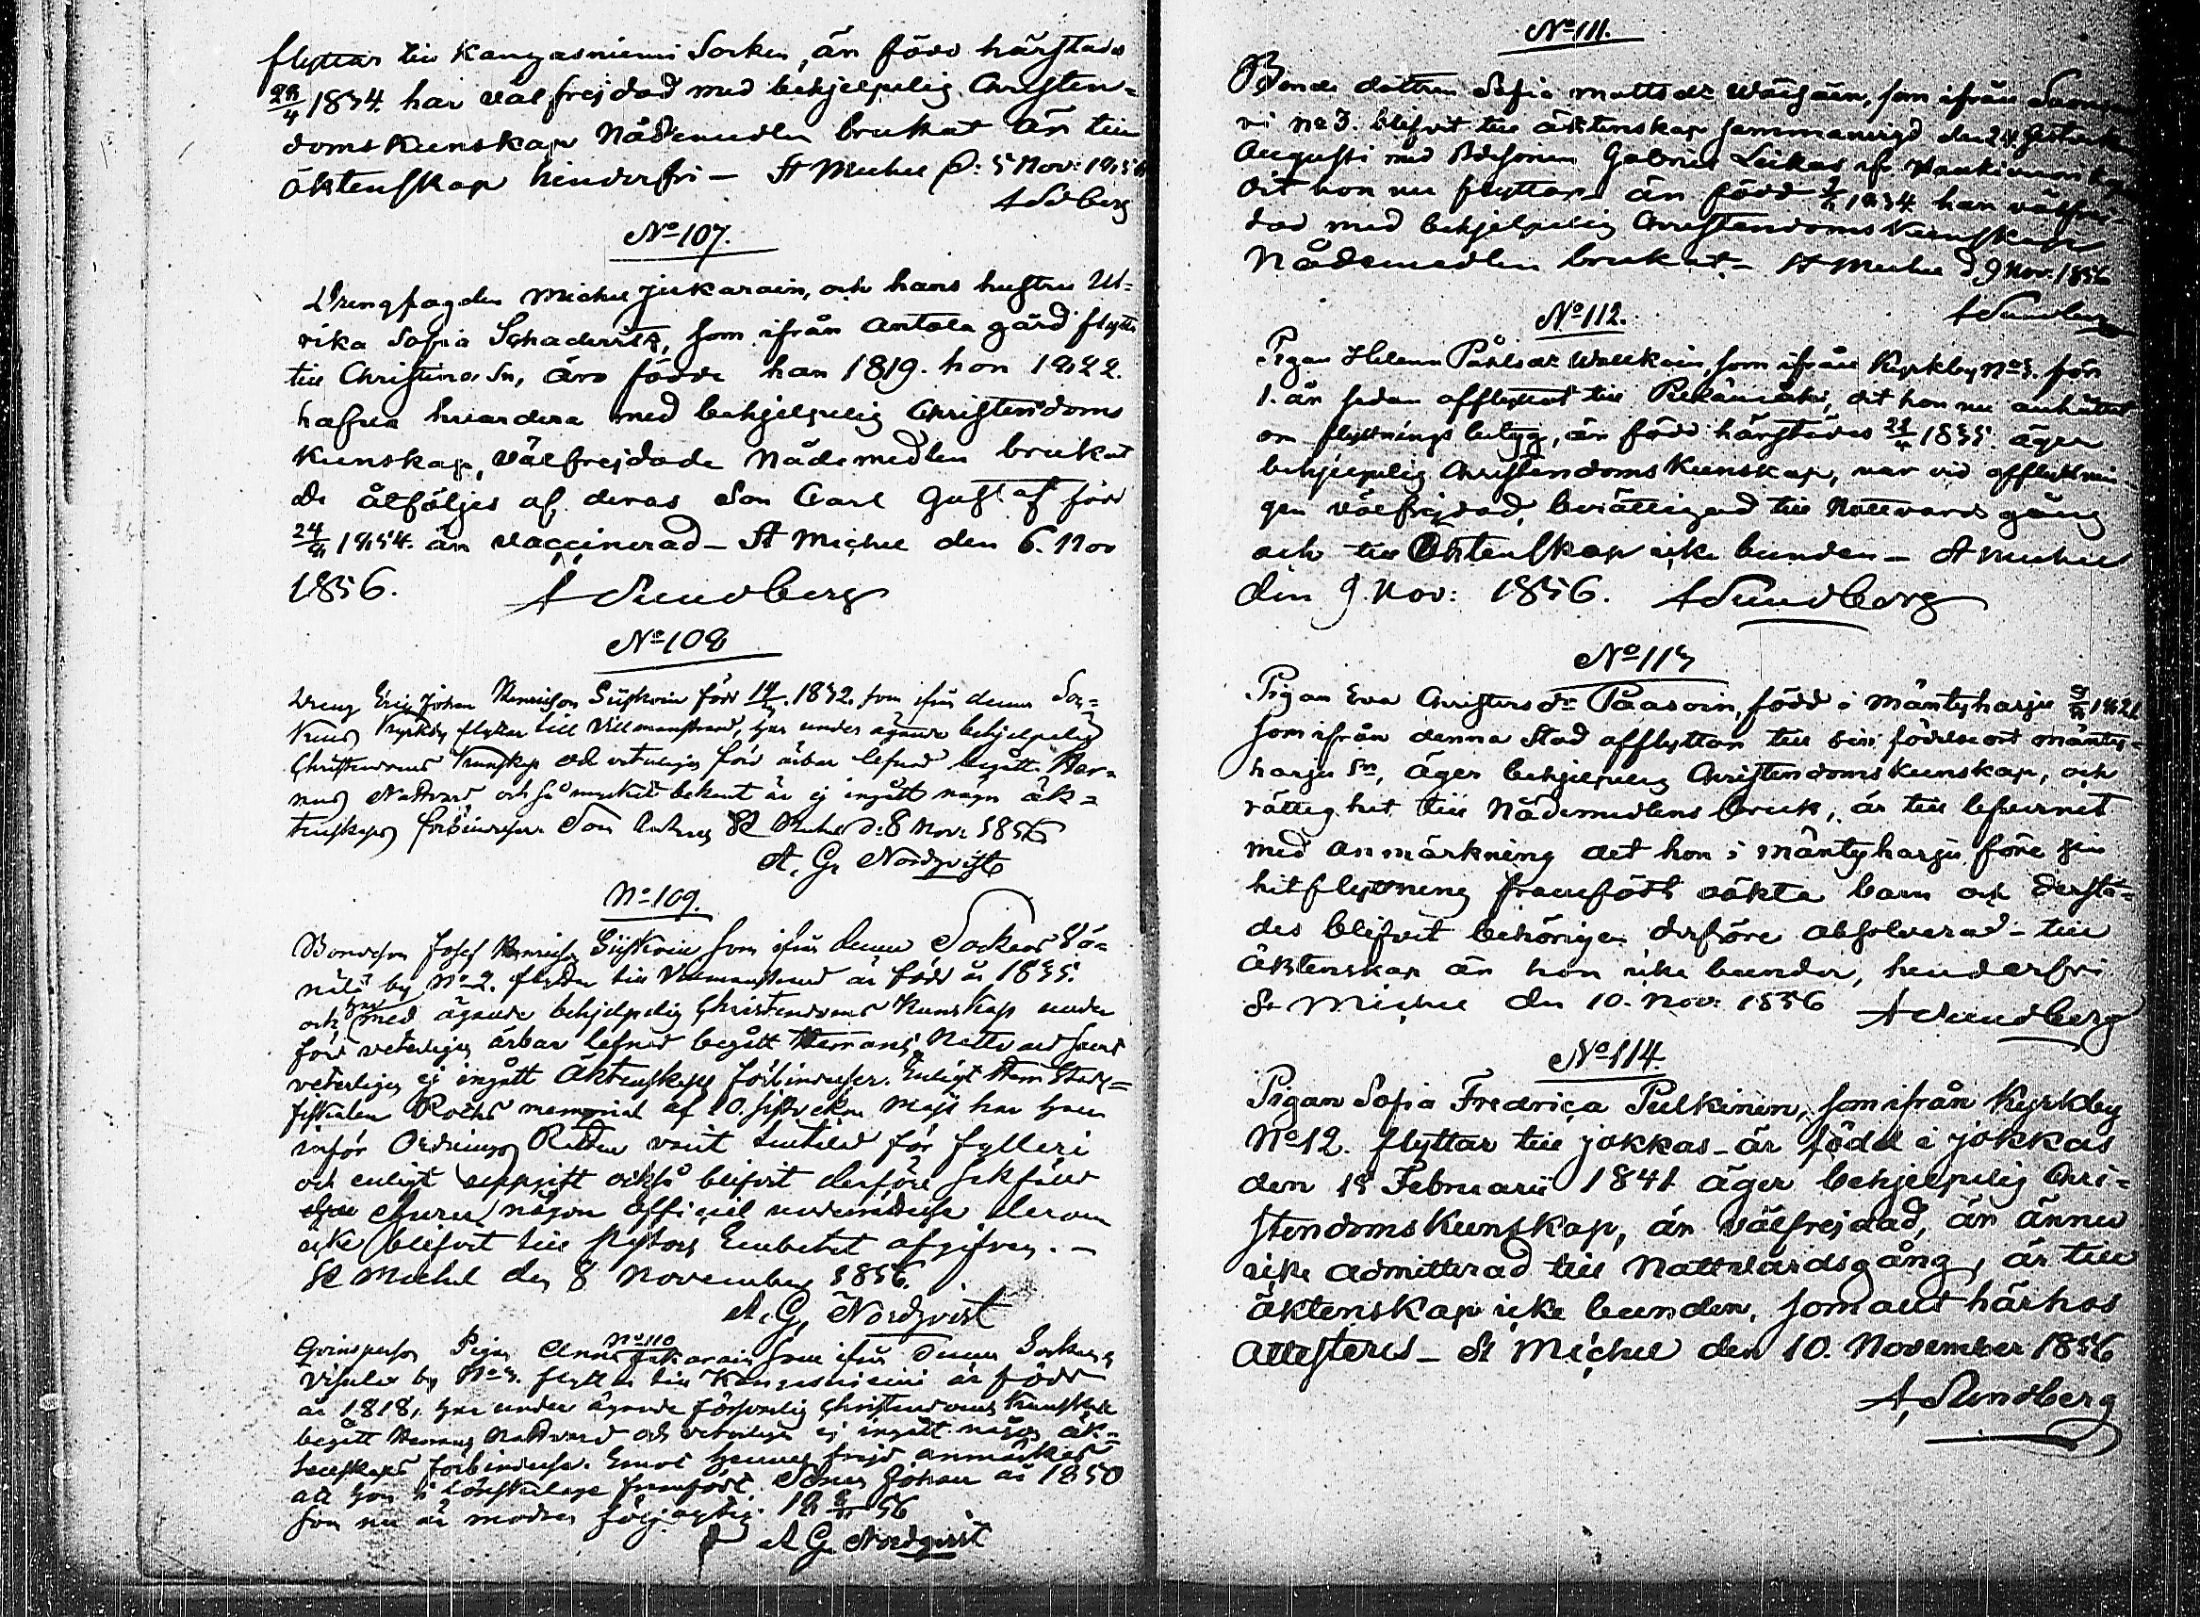 flyttar till Kangasniemi Socken, är född härstädes
28/4 1834. har välfrejdad med behjelpelig Christen-
doms Kunskap Nådemedlen brukat är till
äktenskap hinderfri – St Michel d: 5 Nov: 1856
A Sdberg
No 107.
Drengfogden Michel Jukarain, och hans hustru Ul-
rika Sofia Schadevitz, som ifrån Antola gård flytta
till Christina Sn, äro födde han 1819. hon 1822.
hafva hvardera med behjelpelig Christendoms
Kunskap, välfrejdade Nådemedlen brukat
De åtföljes af deras Son Carl Gustaf född
1854. är vaccinerad – St Michel den 6. Nov
1856. A Sundberg
No 108
Dreng Eric Johan Henricson född 1832. som ifrån denna Soc-
kens Kyrkby flyttar till Villmanstrand, har under ägande behjelpelig
Christendoms Kunskap och veterligen förd ärbar lefnad begått Her-
rans Nattvard och så mycket bekant är ej ingått någon äk-
tenskaps förbindelse Som St Michel d: 8 Nov: 1856
A. G. Nordqvist
No 109.
Bondeson Josef Henricson som ifrån denna Sockens
by No 2. flyttar till Villmanstrand är född år 1835.
och har med ägande behjelpelig Christendoms Kunskap under
förd veterligen ärbar lefnad begått Herrans Nattvard samt
veterligen ej ingått Äktenskaps förbindelser. Enligt Herr Stads-
fiskalen memorial af 10. sistvekne Maji har han
inför Ordnings Rätten varit tilltalad för fylleri
och enligt uppgift också blifvit derföre sakfäld
ehuru någon officiel underrättelse derom
icke blifvit till Pastors Embetet afgifven. –
St Michel den 8 November 1856.
A. G. Nordqvist
No 110
Qvinsperson Pigan Anna Jukarain som ifrån denna Sockens
Visulax by No flyttar till Kangasniemi är född
år 1818, har under ägande försvarlig Christendoms Kunskap
begått Herrans Nattvard och veterligen ej ingått någon äk-
tenskaps förbindelse. Emot hennes frejd anmärkes
att hon i löskaläge framfödt Sonen Johan år 1850
som nu är modren följagtig. 18 8/11 56
A G. Nordqvist
No 111.
Bonde dottren Sofia Mattsdr som ifrån
No 3. blifvit till äktenskap sammanvigd den 24 sistvekne
Augusti med Gabriel Leikas
dit hon nu flyttar är född 1834 har välfrej-
dad med behjelpelig Christendoms Kunskap
Nådemedlen brukat – St Michel d 9 Nov. 1856
A Sundberg
No 112.
Pigan Helena Påhlsdr som ifrån Kyrkby No 3. för
1. år sedan afflyttat till Pieksämäki, dit hon nu anhållit
om flyttnings betyg, är född härstädes 1835. äger
behjelpelig Christendoms Kunskap, var vid afflyttnin
gen välfrejdad, berättigad till Nattvards gång
och till Äktenskap icke bunden – St Michel
den 9. Nov: 1856. A Sundberg
No 113
Pigan Eva Christersdr Paasoin, född i Mäntyharju
som ifrån denna Stad afflyttar till sin födelseort Mänty-
harju Sn, äger behjelpelig Christendoms Kunskap, och
rättighet till Nådemedlens bruk, är till lefvernet
med anmärkning det hon i Mäntyharju före sin
hitflyttning framfödt oäkta barn och derstä-
des blifvit behörigen derföre absolverad – till
äktenskap är hon icke bunden, hinderfri
St Michel den 10. Nov: 1856 A Sundberg
No 114.
Pigan Sofia Fredrica Pulkinen, som ifrån Kyrkby
No 12. flyttar till Jokkas – är född i Jokkas
den 18 Februarii 1841 äger behjelpelig Chri-
stendoms Kunskap, är välfrejdad, är ännu
icke admitterad till Nattvardsgång, är till
äktenskap icke bunden, som allt härhos
attesteres – St Michel den 10. November 1856
A. Sundberg